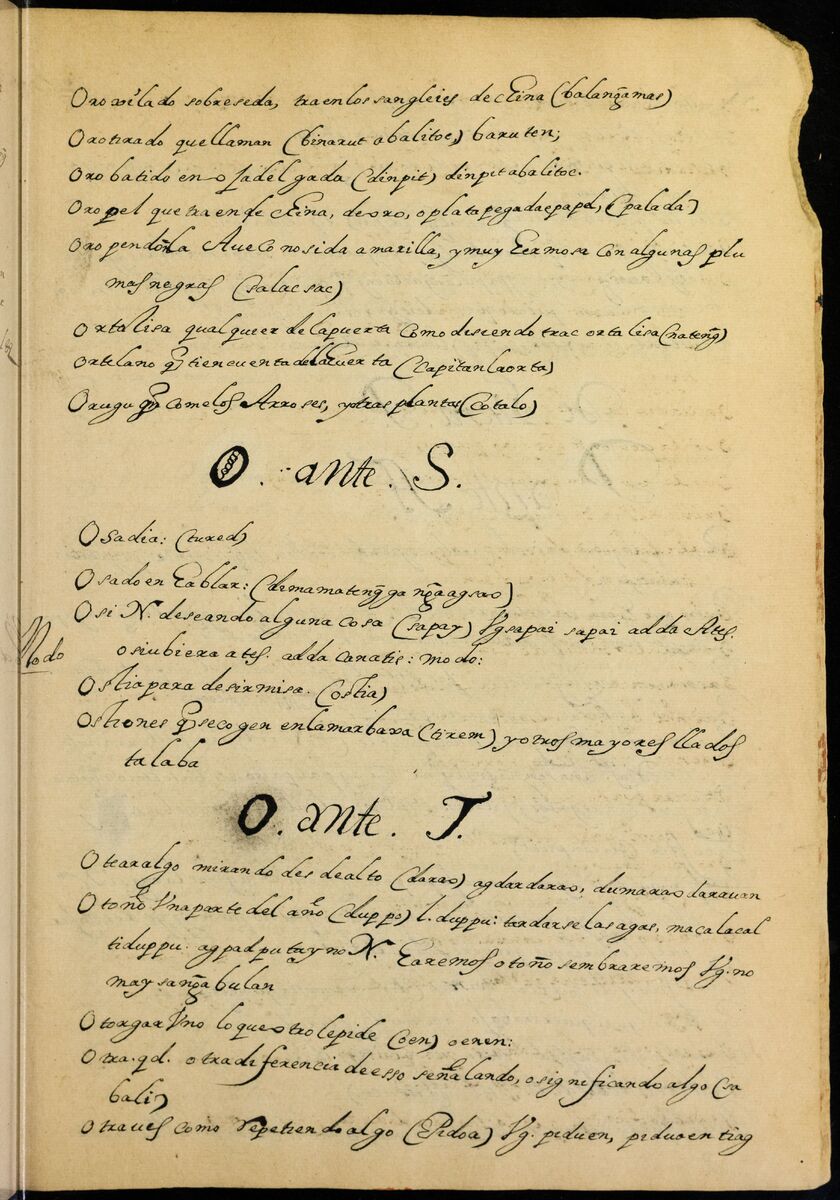 Oro xilado sobre seda, traen los sangleies de china (balangãmas)
Oro tirado que llaman (binarut a balitoc,) baruten;
Oro batido en oja delgada (dinpit) dinpit a balitoc.
Oropel que traen de china, de oro, o plata pegada e papel, (palada)
Oropendõla Aue conosida amarilla, y muy hermosa con algunas plu
mas negras (salacsac)
Ortalisa qualquier de la puerta como disiendo trac ortalisa (nateng)
Ortelano q̃ tiene cuenta de la huerta (Capitan la orta)
Orugu q̃ come los Arroses, y otras plantas (cotalo)
O. ante. S.
Osadia: (tured)
Osado en hablar: (demamateng̃ ga ng̃a agsao)
O si N. deseando alguna cosa (sapay) Vg sapai sapai adda Ates.
o si ubiera ates. adda canatis: modo:
Modo
Ostia para desir misa. (ostia)
Ostiones q̃ se cogen en la mar baxa (tirem) y otros mayores llados
talaba
O. ante. T.
Otear algo mirando desde alto (darao) agdardarao, dumarao darauan
Otoño Vna parte del año (duppo) l. duppu: tardarse las agas, macalacal
ti duppu. agpadputay no N. haremos otoño sembraremos Vg. no
may sang̃a bulan
Otorgar Vno lo que otro le pide (oen) oenen:
Otra. qd. otra diferencia de esso señalando, o significando algo (sa
bali)
Otra ues como repetiendo algo (Pidoa) Vg. piduen, piduoen tiag